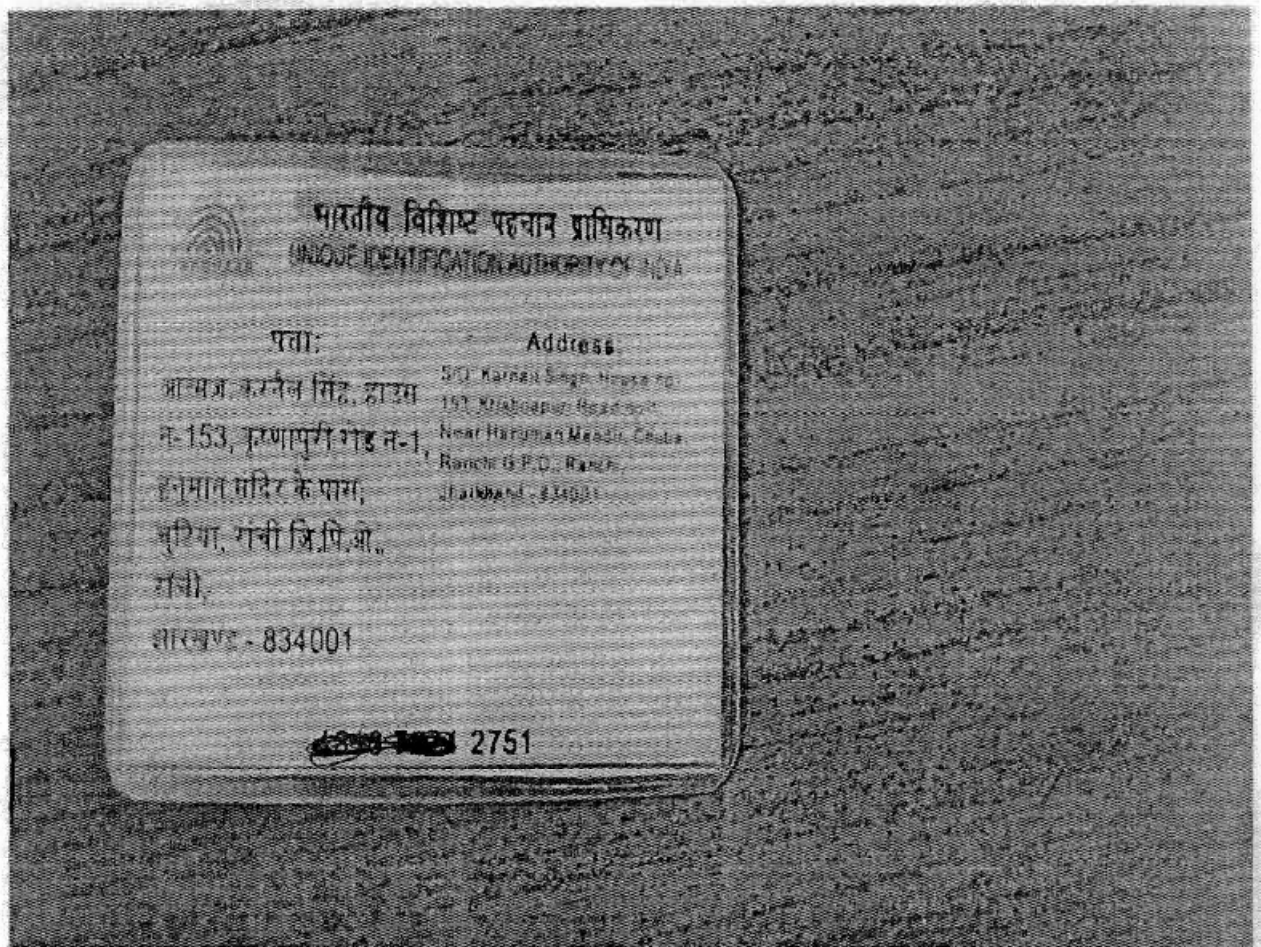 भारतीय विशिष्ट पहचान प्राधिकरण
UNIQUE IDENTIFICATION AUTHORITY OF INDIA
पता:
आत्मज: करनैल सिंह, हाउस
न-153, कृष्णापुरी रोड न-1,
हनुमान मंदिर के पास,
चुटिया, रांची जि.पि.ओ.,
रांची,
झारखण्ड - 834001
Address:
S/O: Karnail Singh, House no-
153, Krishnapuri Road no-1,
Near Hanuman Mandir,
Ranchi G.P.O., Ranchi,
Jharkhand - 834001
2751